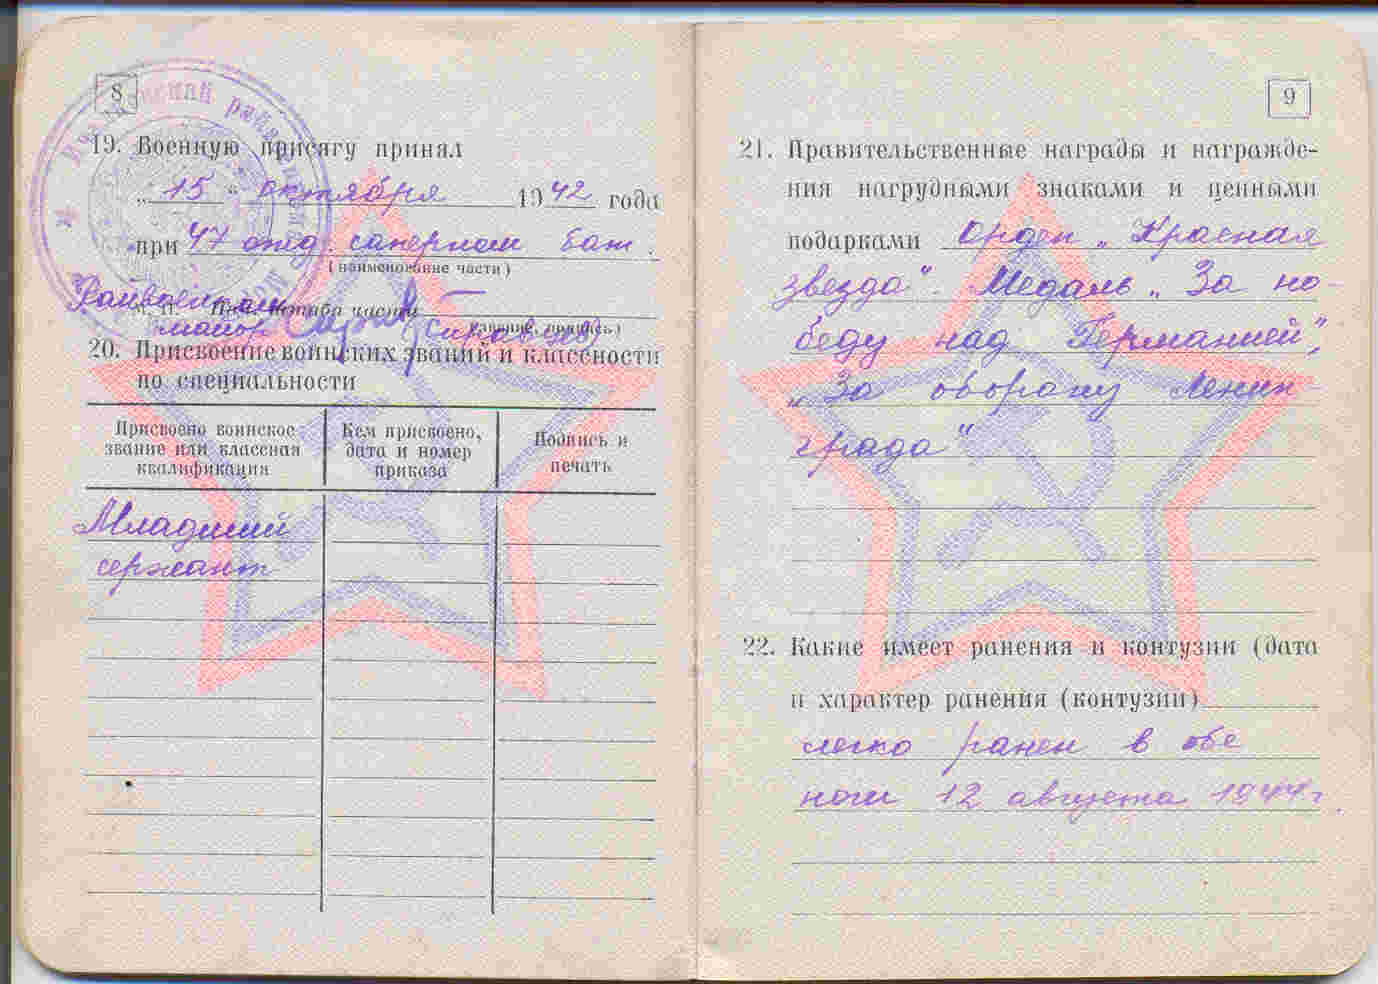 8
19. Военную присягу принял
„ 15 “ октября 1942 года
при 47 отд. саперном бат.
(наименование части)
Райвоенком
М. П. Нач. штаба части
майор (звание, подпись)
20. Присвоение воинских званий и классности
по специальности
Присвоено воинское звание или классная квалификация
Кем присвоено, дата и номер приказа
Подпись и печать
Младший
сержант
9
21. Правительственные награды и награжде-
ния нагрудными знаками и ценными
подарками Орден „Красная
звезда“ Медаль „За по-
беду над Германией“,
„За оборону Ленин-
града“
22. Какие имеет ранения и контузии (дата
и характер ранения (контузии)
легко ранен в обе
ноги 12 августа 1944 г.